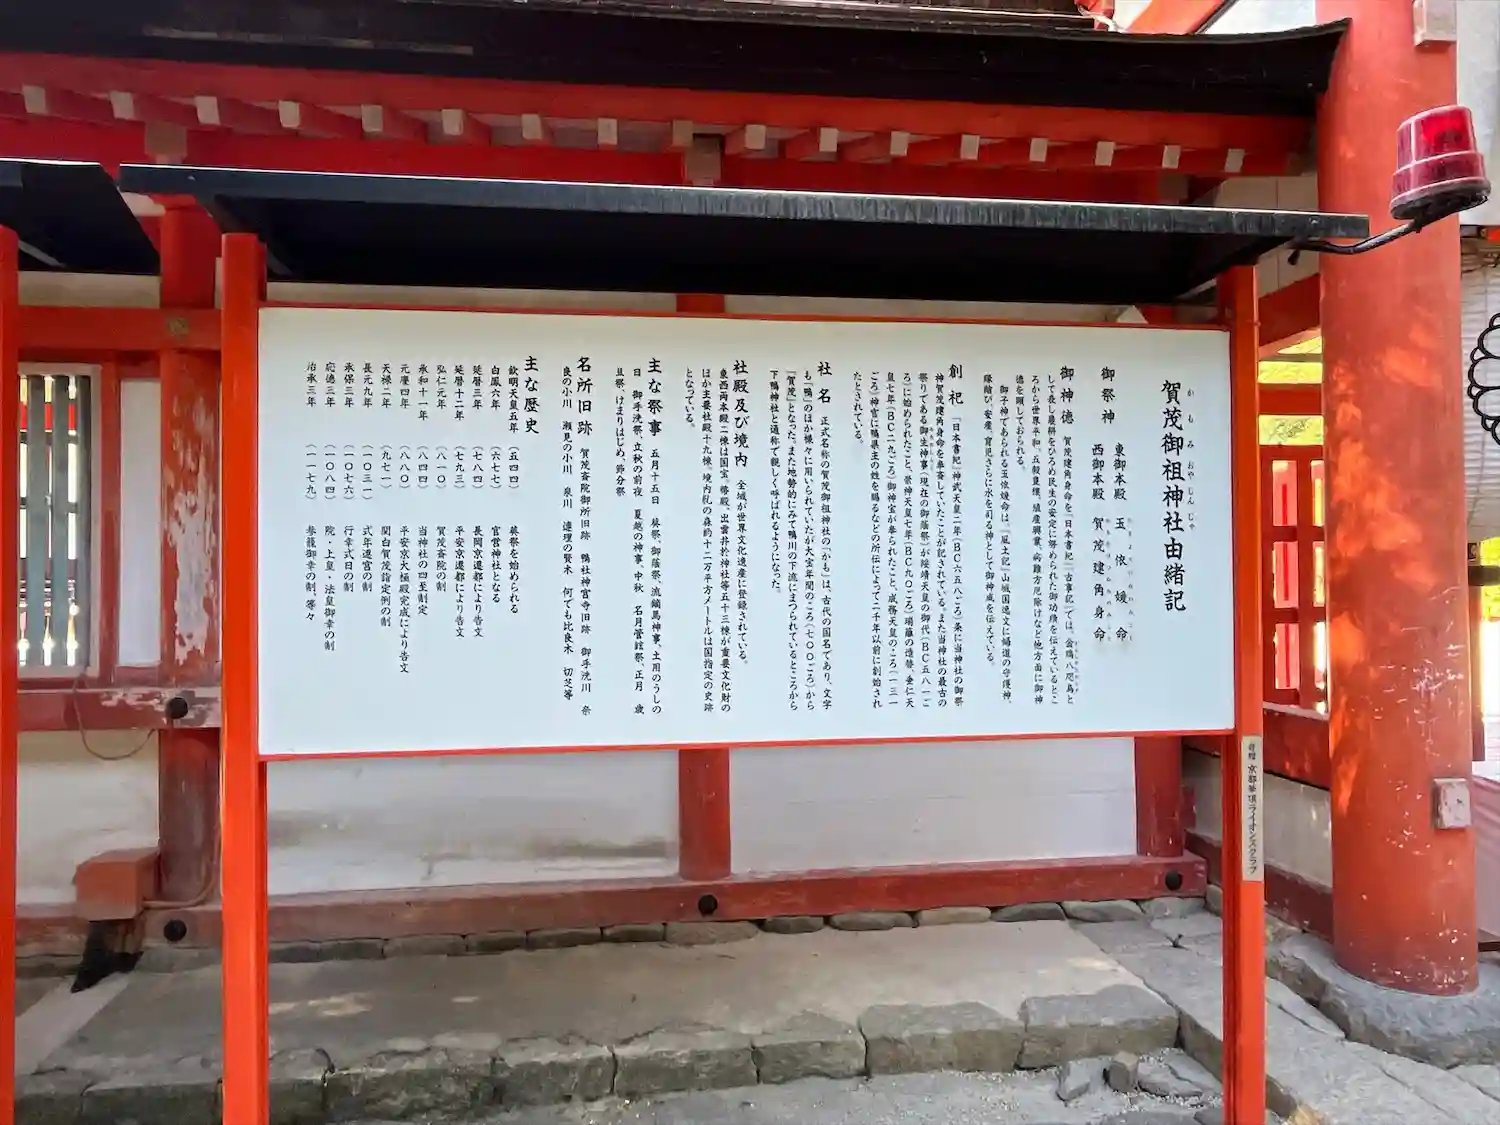 賀茂御祖神社由緒記
かもみおやじんじゃ
御祭神
東御本殿 玉依媛命
西御本殿 賀茂建角身命
御神徳 賀茂建角身命を『日本書紀』『古事記』では、金鵄八咫烏と
して表し農耕をひろめ民生の安定に努められた御功績を伝えているとこ
ろから世界平和、五穀豊穣、殖産興業、病難方厄除けなど他方面に御神
徳を顕しておられる。
御子神であられる玉依媛命は、『風土記』山城国逸文に婦道の守護神、
縁結び、安産、育児さらに水を司る神として御神威を伝えている。
創祀 『日本書紀』神武天皇二年(BC六五八ごろ)条に当神社の御祭
神賀茂建角身命を奉斎していたことが記されている。また当神社の最古の
祭りである御生神事(現在の御蔭祭)が綏靖天皇の御代(BC五八一ご
ろ)に始められたこと、崇神天皇七年(BC九〇ごろ)瑞籬の造替、垂仁天
皇七年(BC二九ごろ)御神宝が奉られたこと、成務天皇のころ(一三一
ごろ)神官に鴨県主の姓を賜るなどの所伝によって二千年以前に創始され
たとされている。
社名 正式名称の賀茂御祖神社の「かも」は、古代の国名であり、文字
も「鴨」のほか様々に用いられていたが大宝年間のころ(七〇〇ごろ)から
「賀茂」となった。また地勢的にみて鴨川の下流にまつられているところから
下鴨神社と通称で親しく呼ばれるようになった。
社殿及び境内 全域が世界文化遺産に登録されている。
東西両本殿二棟は国宝。幣殿、出雲井於神社等五十三棟が重要文化財の
ほか主要社殿十九棟。境内糺の森約十二万平方メートルは国指定の史跡
となっている。
主な祭事 五月十五日 葵祭、御蔭祭、流鏑馬神事、土用のうしの
日 御手洗祭、立秋の前夜 夏越の神事、中秋 名月管絃祭、正月 歳
旦祭、けまりはじめ、節分祭
名所旧跡 賀茂斎院御所旧跡 鴨社神宮寺旧跡 御手洗川 奈
良の小川 瀬見の小川 泉川 連理の賢木 何でも比良木 切芝等
主な歴史
欽明天皇五年 (五四四) 葵祭を始められる
白鳳六年 (六七七) 官営神社となる
延暦三年 (七八四) 長岡京遷都により告文
延暦十二年 (七九三) 平安京遷都により告文
弘仁元年 (八一〇) 賀茂斎院の制
承和十一年 (八四四) 当神社の四至制定
元慶四年 (八八〇) 平安京大極殿完成により告文
天禄二年 (九七一) 関白賀茂詣定例の制
長元九年 (一〇三一) 式年遷宮の制
承保三年 (一〇七六) 行幸式日の制
応徳三年 (一〇八四) 院・上皇・法皇御幸の制
治承三年 (一一七九) 参籠御幸の制、等々
寄贈 京都華頂ライオンズクラブ